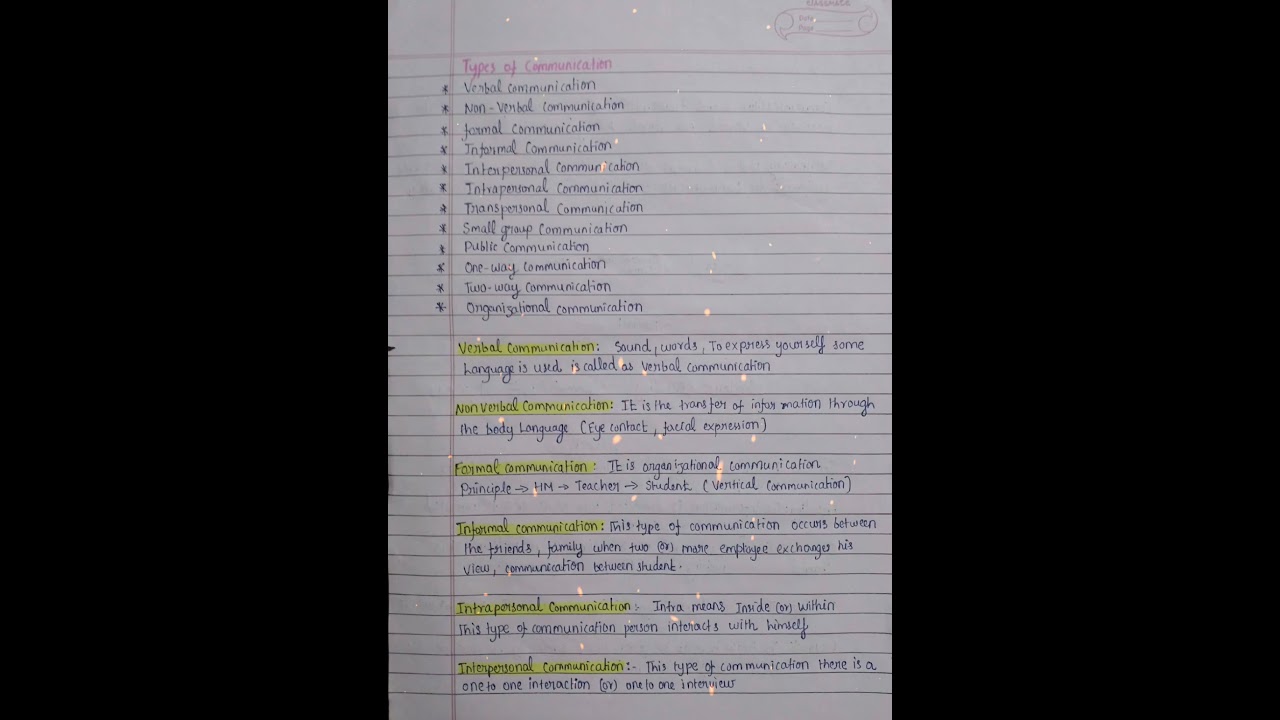 classmate
Date
Page
Types of Communication
* Verbal Communication
* Non-Verbal Communication
* formal Communication
* Informal Communication
* Interpersonal Communication
* Intrapersonal Communication
* Transpersonal Communication
* Small group Communication
* Public Communication
* One-way Communication
* Two-way Communication
* Organisational communication
Verbal Communication: Sound, words, To express yourself some
Language is used is called as verbal communication
Non verbal Communication: It is the transfer of information through
the body Language (Eye contact, facial expression)
Formal communication: It is organizational communication
Principle → HM → Teacher → Student (Vertical Communication)
Informal communication: This type of communication occurs between
the friends, family when two (or) more employee exchanges his
view, communication between student.
Intrapersonal Communication:- Intra means Inside (or) within
This type of communication person interacts with himself
Interpersonal Communication:- This type of communication there is a
one to one interaction (or) one to one interview